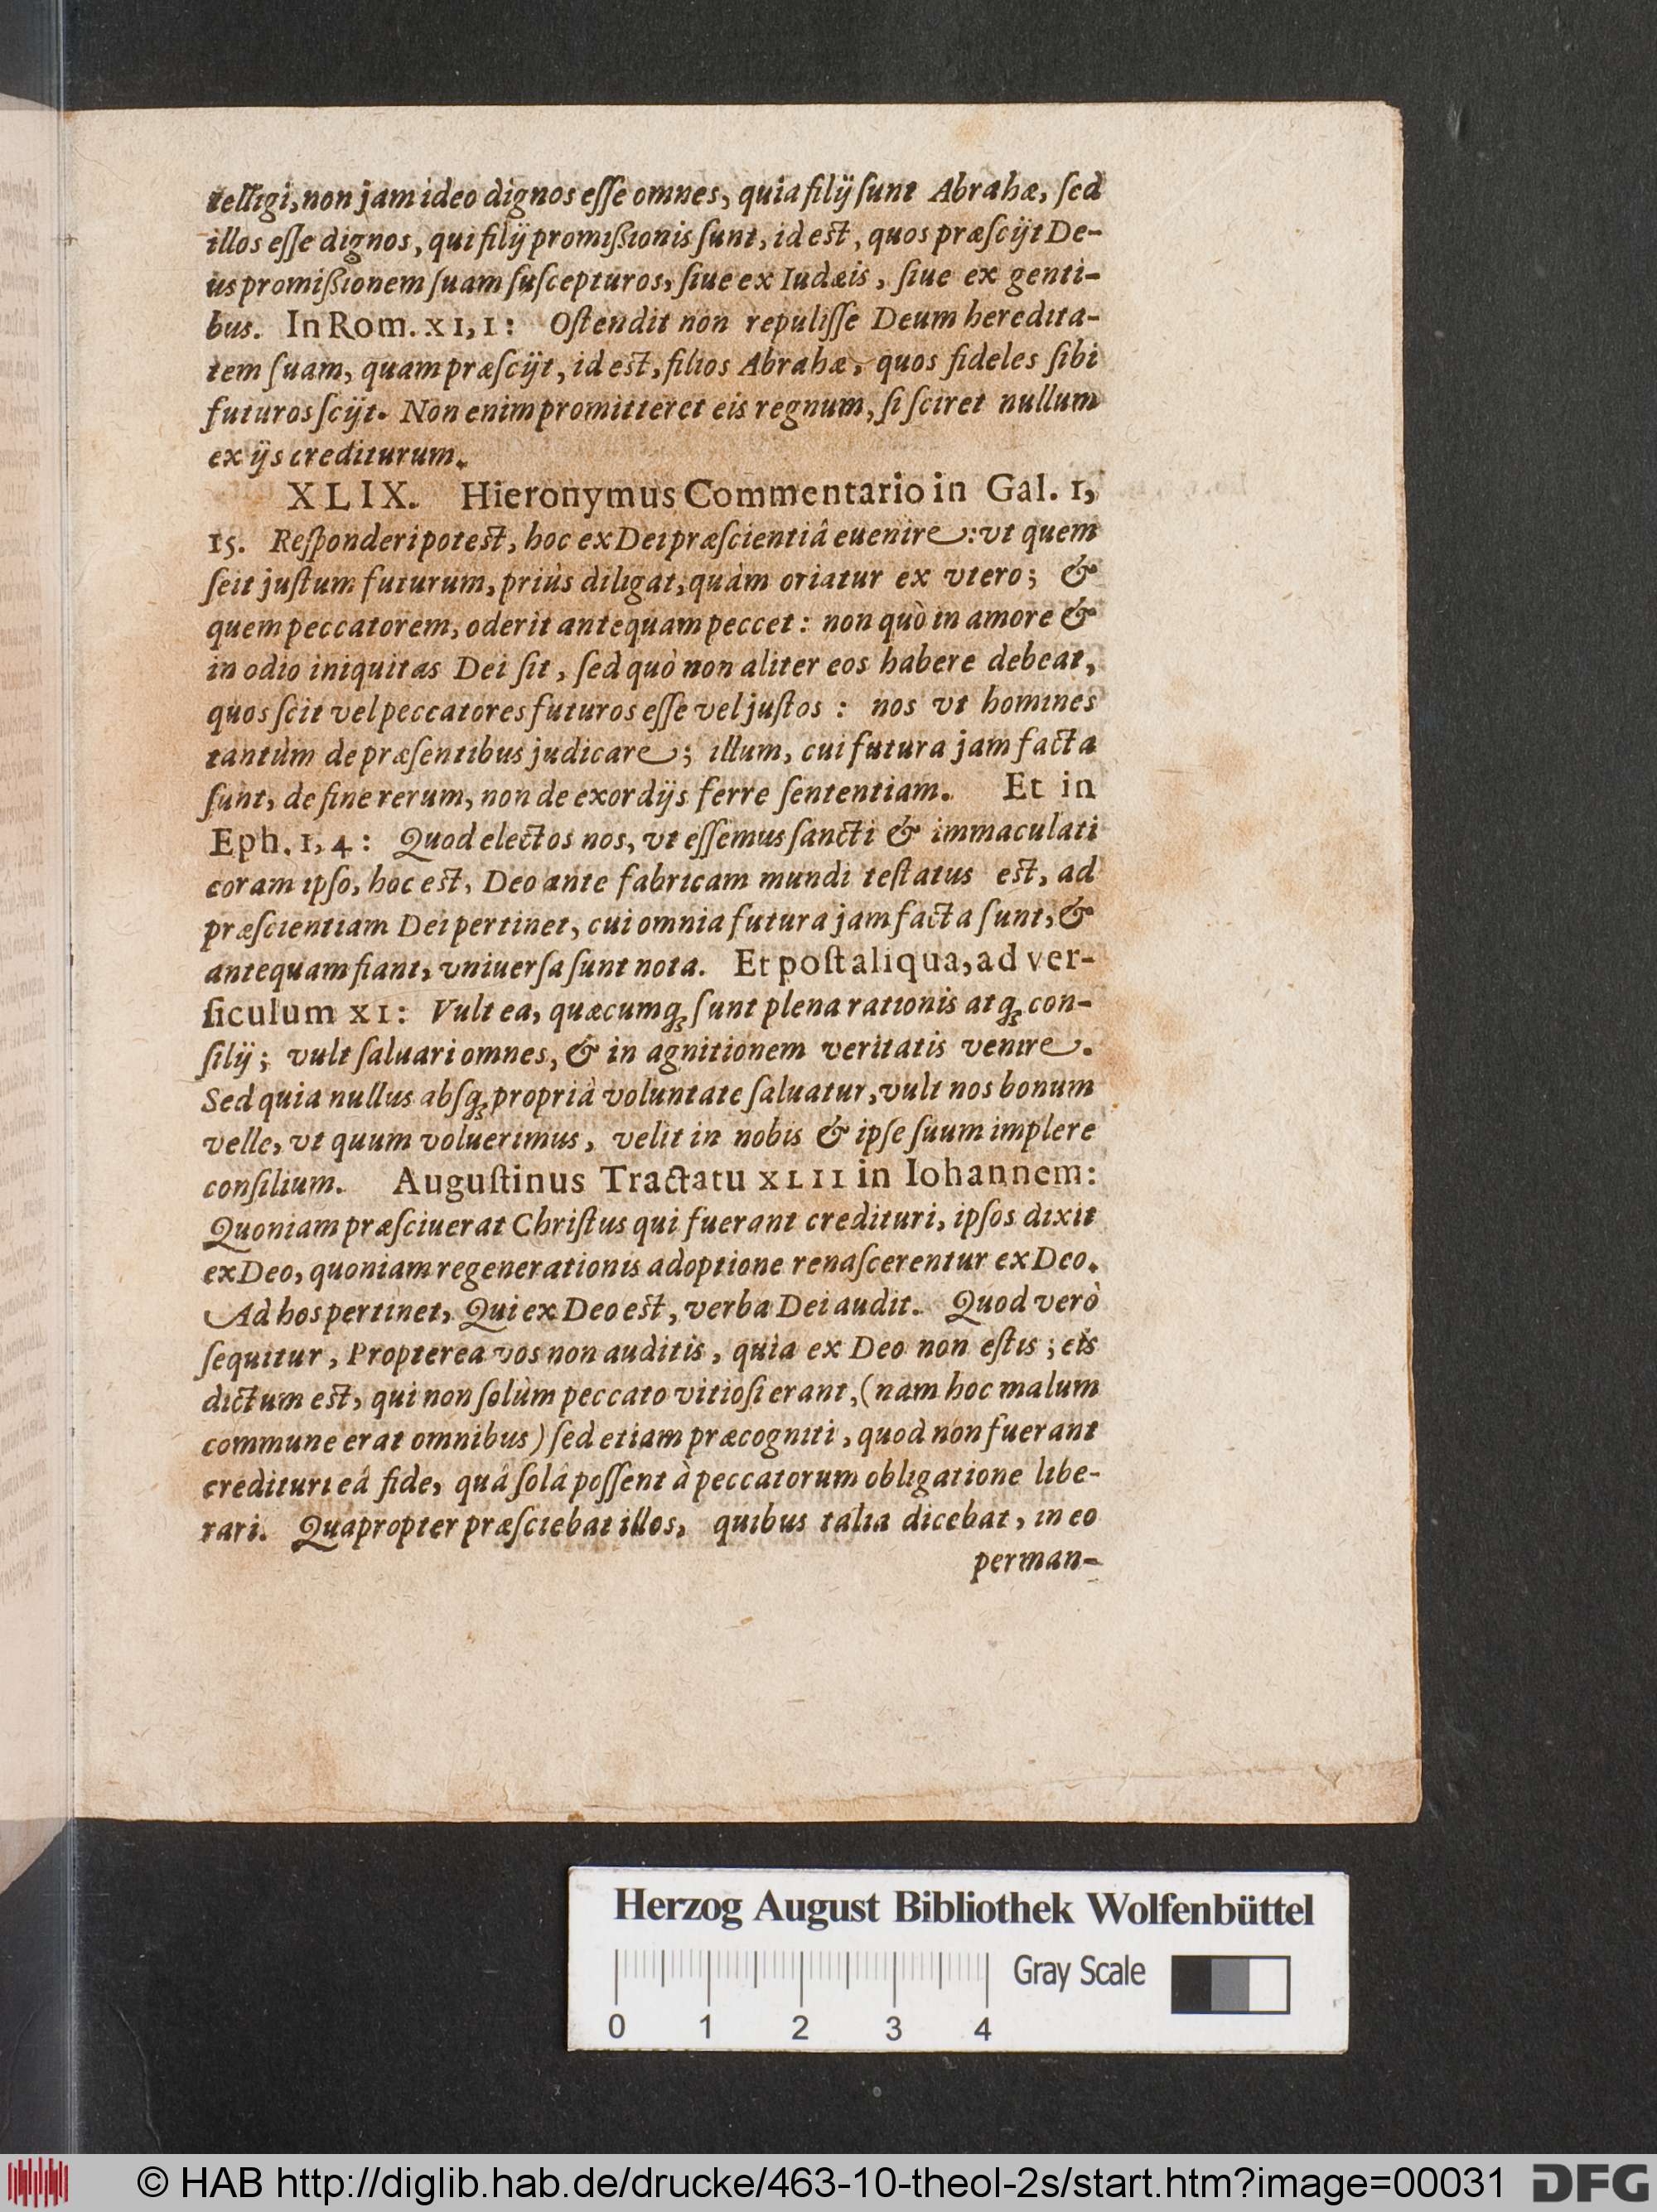 telligi, non jam ideo dignos eſſe omnes, quia filij ſunt Abrahæ, ſed
illos eſſe dignos, qui filij promiſſionis ſunt, id est, quos præſcijt De-
us promiſſionem ſuam ſuſcepturos, ſiue ex Iudæis, ſiue ex genti-
bus. In Rom. XI, 1: Oſtendit non repuliſſe Deum heredita-
tem ſuam, quam præſcijt, id est, filios Abrahæ, quos fideles ſibi
futuros ſcijt. Non enim promitteret eis regnum, ſi ſciret nullum
ex ijs crediturum.
XLIX. Hieronymus Commentario in Gal. 1,
15. Reſponderi potest, hoc ex Dei præſcientiâ euenire: vt quem
ſeit juſtum futurum, priùs diligat, quàm oriatur ex vtero; &
quem peccatorem, oderit antequam peccet: non quò in amore &
in odio iniquitas Dei ſit, ſed quò non aliter eos habere debeat,
quos ſcit vel peccatores futuros eſſe vel juſtos: nos vt homines
tantùm de præſentibus judicare; illum, cui futura jam facta
ſunt, de fine rerum, non de exordijs ferre ſententiam. Et in
Eph. 1, 4: Quod electos nos, vt eſſemus ſancti & immaculati
coram ipſo, hoc est, Deo ante fabricam mundi teſtatus est, ad
præſcientiam Dei pertinet, cui omnia futura jam facta ſunt, &
antequam fiant, vniuerſa ſunt nota. Et poſt aliqua, ad ver-
ſiculum XI: Vult ea, quæcumq; ſunt plena rationis atq; con-
ſilij; vult ſaluari omnes, & in agnitionem veritatis venire.
Sed quia nullus abſq; propriâ voluntate ſaluatur, vult nos bonum
velle, vt quum voluerimus, velit in nobis & ipſe ſuum implere
conſilium. Auguſtinus Tractatu XLII in Iohannem:
Quoniam præſciuerat Chriſtus qui fuerant credituri, ipſos dixit
ex Deo, quoniam regenerationis adoptione renaſcerentur ex Deo.
Ad hos pertinet, Qui ex Deo est, verba Dei audit. Quod verò
ſequitur, Propterea vos non auditis, quia ex Deo non eſtis; eis
dictum est, qui non ſolùm peccato vitioſi erant, (nam hoc malum
commune erat omnibus) ſed etiam præcogniti, quod non fuerant
credituri eâ fide, quâ ſolâ poſſent à peccatorum obligatione libe-
rari. Quapropter præſciebat illos, quibus talia dicebat, in eo
perman-
Herzog August Bibliothek Wolfenbüttel
Gray Scale
0 1 2 3 4
© HAB http://diglib.hab.de/drucke/463-10-theol-2s/start.htm?image=00031
DFG